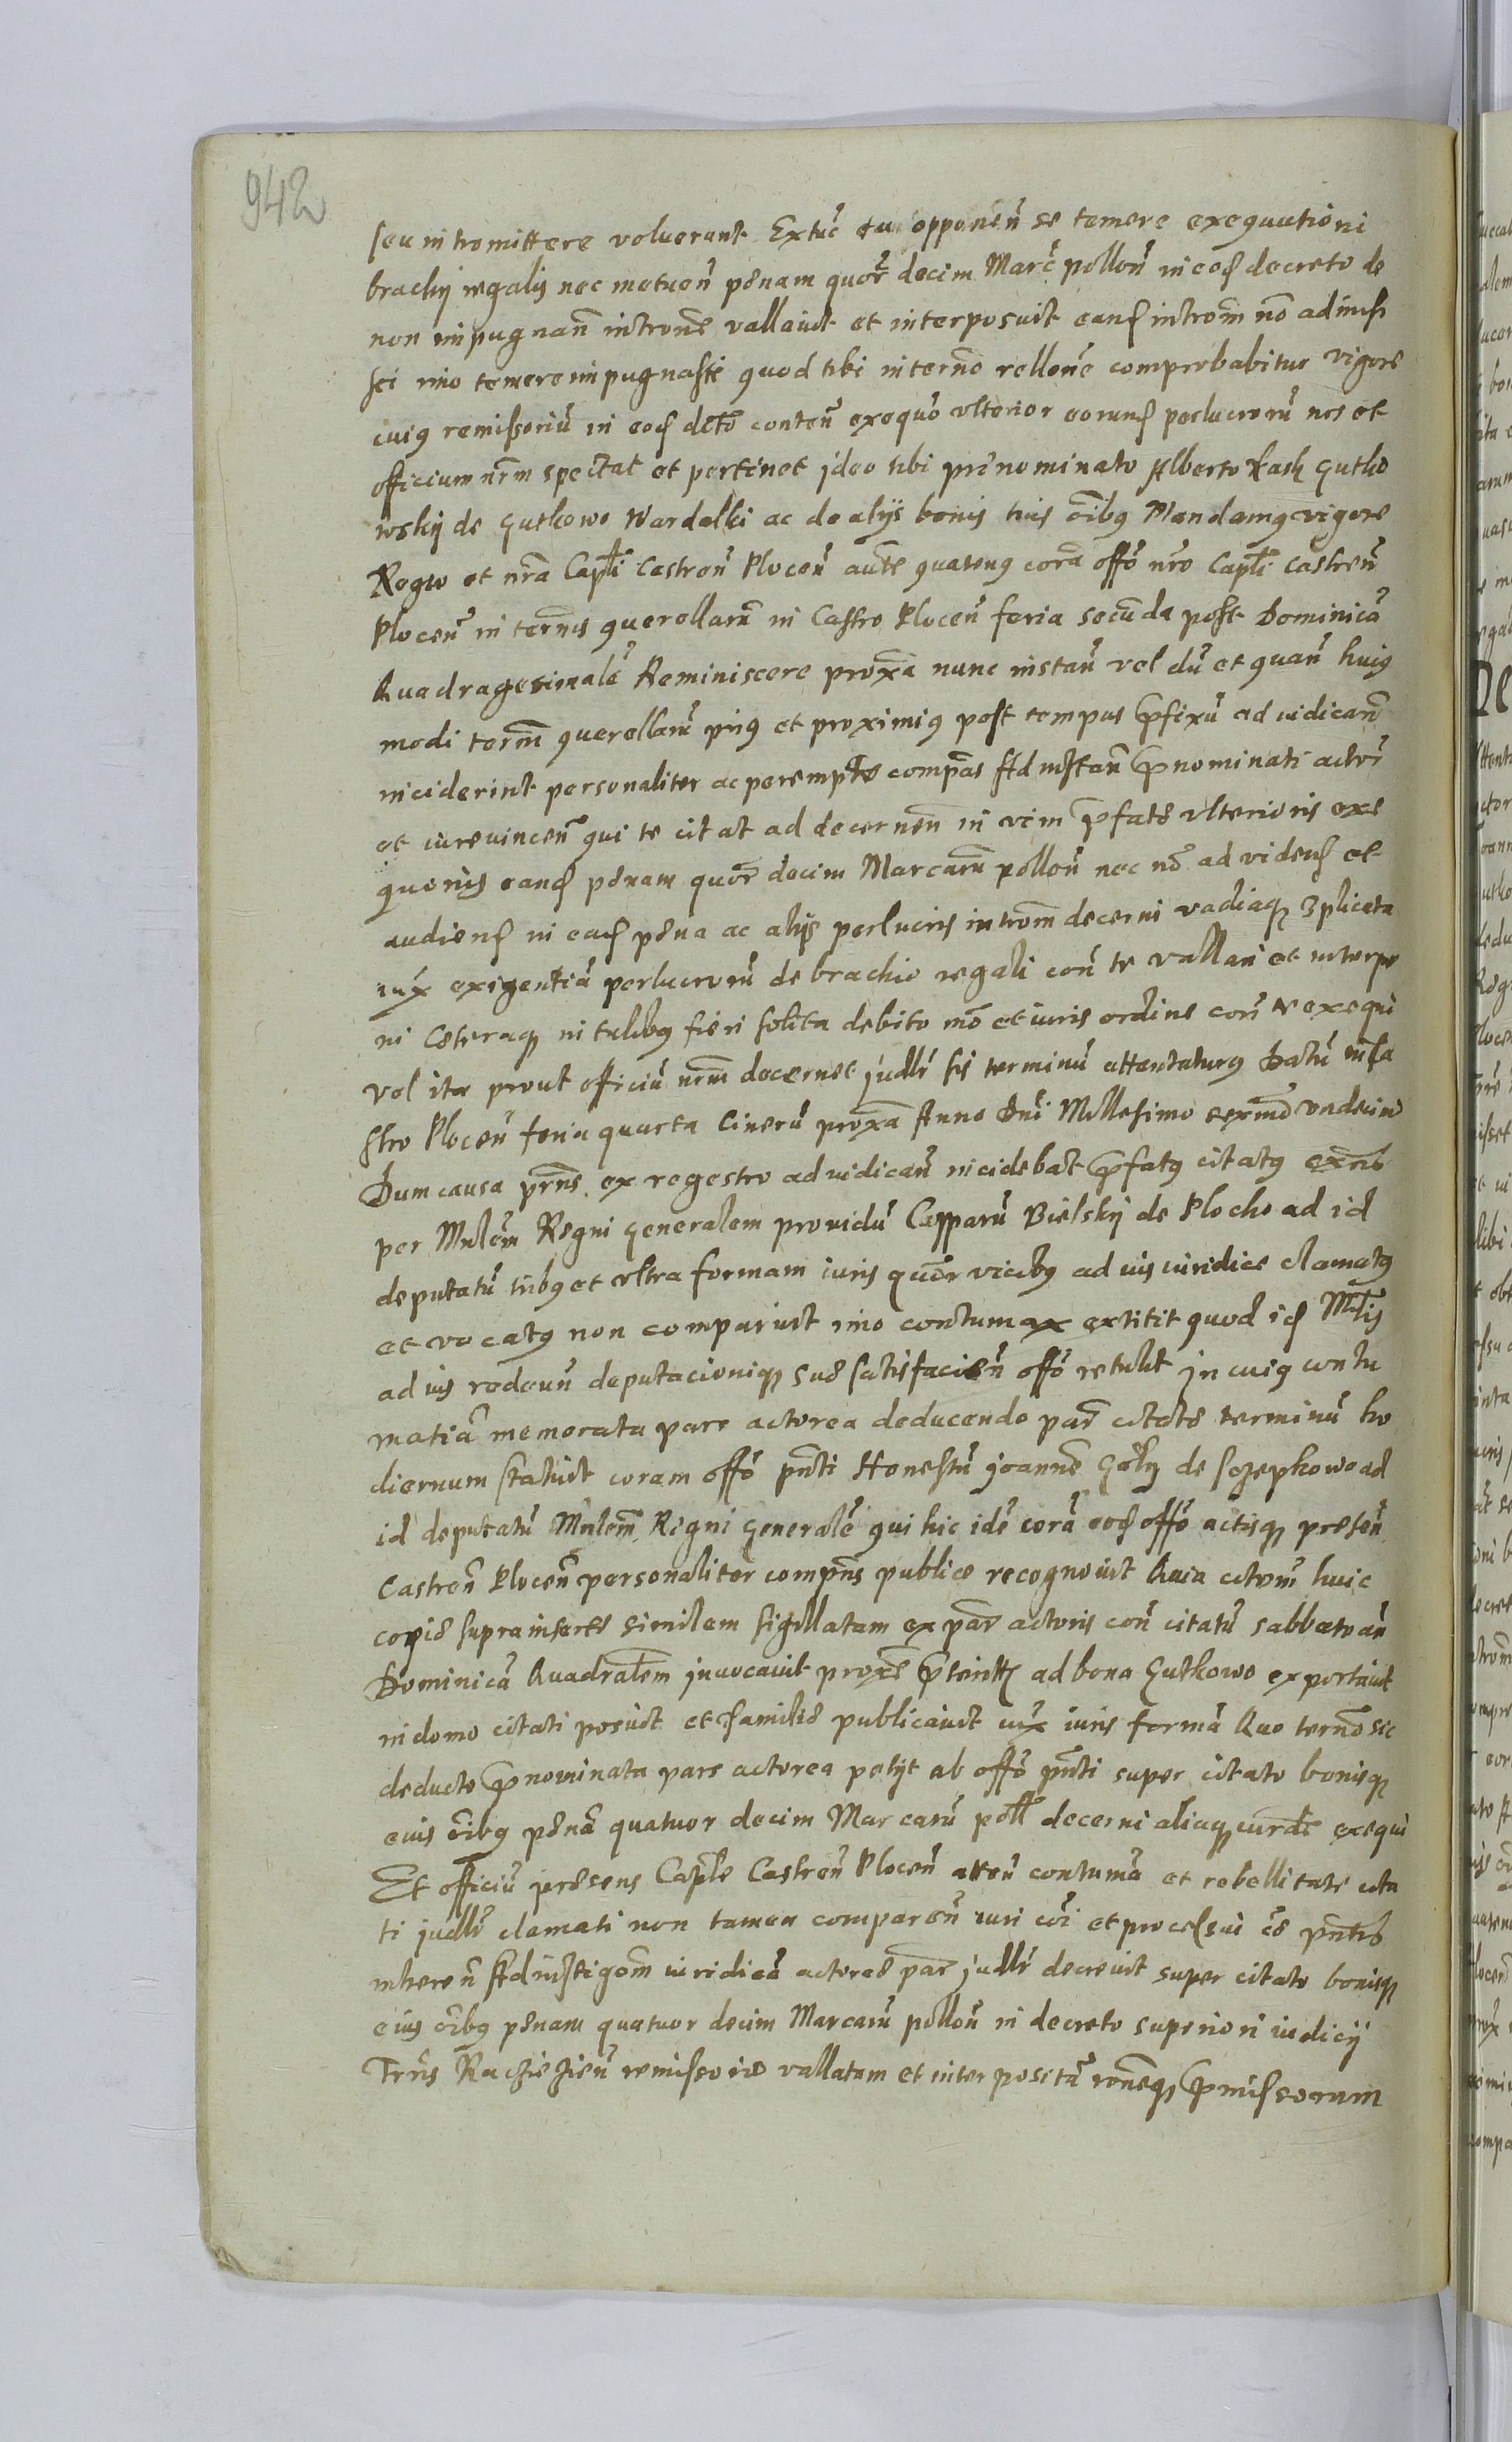 942
seu intromittere voluerunt Extuc tu opponen̄ se temere exequutioni
brachy regalis nec metuen̄ pęnam quor̄ decim Marc̄ pollon̄ in eod decreto de
non impugnan̄ intronē vallauit et interposuit eand introm̄ nō admi
sisti imo temere impugnasti quod tibi in ternō rellōne comprobabitur vigore
cuig remissoriū in eod dcto conten̄ exequō vlterior eorund perlucrorū nos et
officium nrm̄ spectat et pertinet jdeo tibi prēnominato Alberto Kash Gutko
wskÿ de Gutkowo Wardalki ac de alÿs bonis tuis oībg Mandamg vigore
Regio et nrā Capli Castren̄ Plocen̄ auctē quateng corā offō nrō Capli Castren̄
Plocen̄ in ternis querellarū in Castro Plocen̄ feria secūda post Dominicā
Quadragesimalē Reminiscere proxā nunc instan̄ vel dū et quan̄ huig
modi term̄ querellarū prig et proximig post tempus p̄fixū ad iudican̄
inciderint personaliter ac perempte compās Ad instan̄ p̄nominati actōr
et iureuincen̄ qui te citat ad decernen̄ in vim p̄fatę vlterioris exe
quōnis eand pęnam quor̄ decim Marcarū pollon̄ nec nō ad vidend et
audiend in ead pęna ac alÿs perlucris introm̄ decerni vadiaq 3plicata
iux̄ exigentiā perlucrorū de brachio regali con̄ te vallari et interpo
ni Cęteraq in talibg fieri solita debito mō et iuris ordine con̄ te exequi
vel ita prout officiū nrm̄ decernet judlr̄ sis terminū attentaturg Datū in Ca
stro Plocen̄ feria quarta Cinerū proxā Anno Dni Millesimo sexmō vndecimo
Dum causa prn̄s ex regestro ad iudican̄ incidebat p̄fatg citatg
per Mnlem̄ Regni Generalem prouidū Casparū Bielskÿ de Plocko ad id
deputatū tribg et vltra formam iuris quor̄ vicibg ad ius iuridice clamatg
et vocatg non comparuit imo contumax extitit quod id Mtlis
ad ius redeun̄ deputacioniq suę satisfacien̄ offō retulit jn cuig contu
matiā memorata pars actorea deducendo par̄ citatę terminū ho
diernum statuit coram offō pn̄ti Honestū joannē Golÿ de Szepkowo ad
id deputatū Mnlem̄ Regni Generalē qui hic idē corā eod offō actisq presen̄
Castren̄ Plocen̄ personaliter compn̄s publice recognouit Quia citōm huic
copię suprainsertę similem sigillatam ex par̄ actoris con̄ citatū sabbato an̄
Dominicā Quadralem̄ jnuocauit proxē p̄terit ad bona Gutkowo exportauit
in domo citati posuit et familię publicauit iux̄ iuris formā Quo ternō sic
deducto p̄nominata pars actorea petÿt ab offō pn̄ti super citato bonisq
euis oībg pęnā quatuor decim Marcarū poll decerni aliaq iurdē exequi
Et officiū pręsens Caplē Castren̄ Plocen̄ atten̄ contumā et rebellitatē cita
ti judlr̄ clamati non tamen comparen̄ iuri cōi et processui cę pn̄tis
inheren̄ Ad instigōm iuridicā actoreę par̄ judlr̄ decreuit super citato bonisq
eius oībg pęnam quatuor decim Marcarū pollon̄ in decreto superiori iudicÿ
Trn̄s Raczieziēn remissorio vallatam et interpositā rōneq p̄missorum